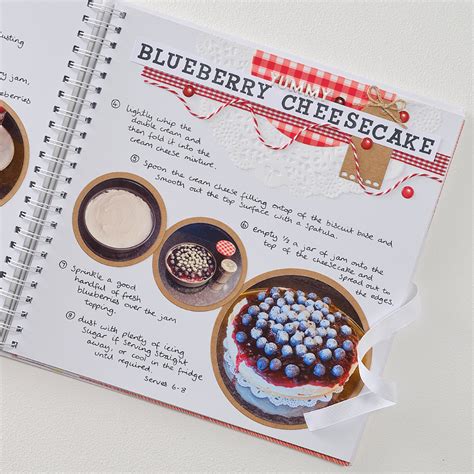 custing
y jam,
eberries
YUMMY
BLUEBERRY CHEESECAKE
④ lightly whip the
double cream and
then fold it into the
cream cheese mixture.
⑤ Spoon the cream cheese filling ontop of the biscuit base and
smooth out the top surface with a spatula.
⑥ empty ½ a jar of jam onto the
top of the cheesecake and
spread out to
the edges
⑦ sprinkle a good
handful of fresh
blueberries over the jam
topping.
⑧ dust with plenty of icing
sugar if serving straight
away, or cool in the fridge
until required.
Serves 6-8